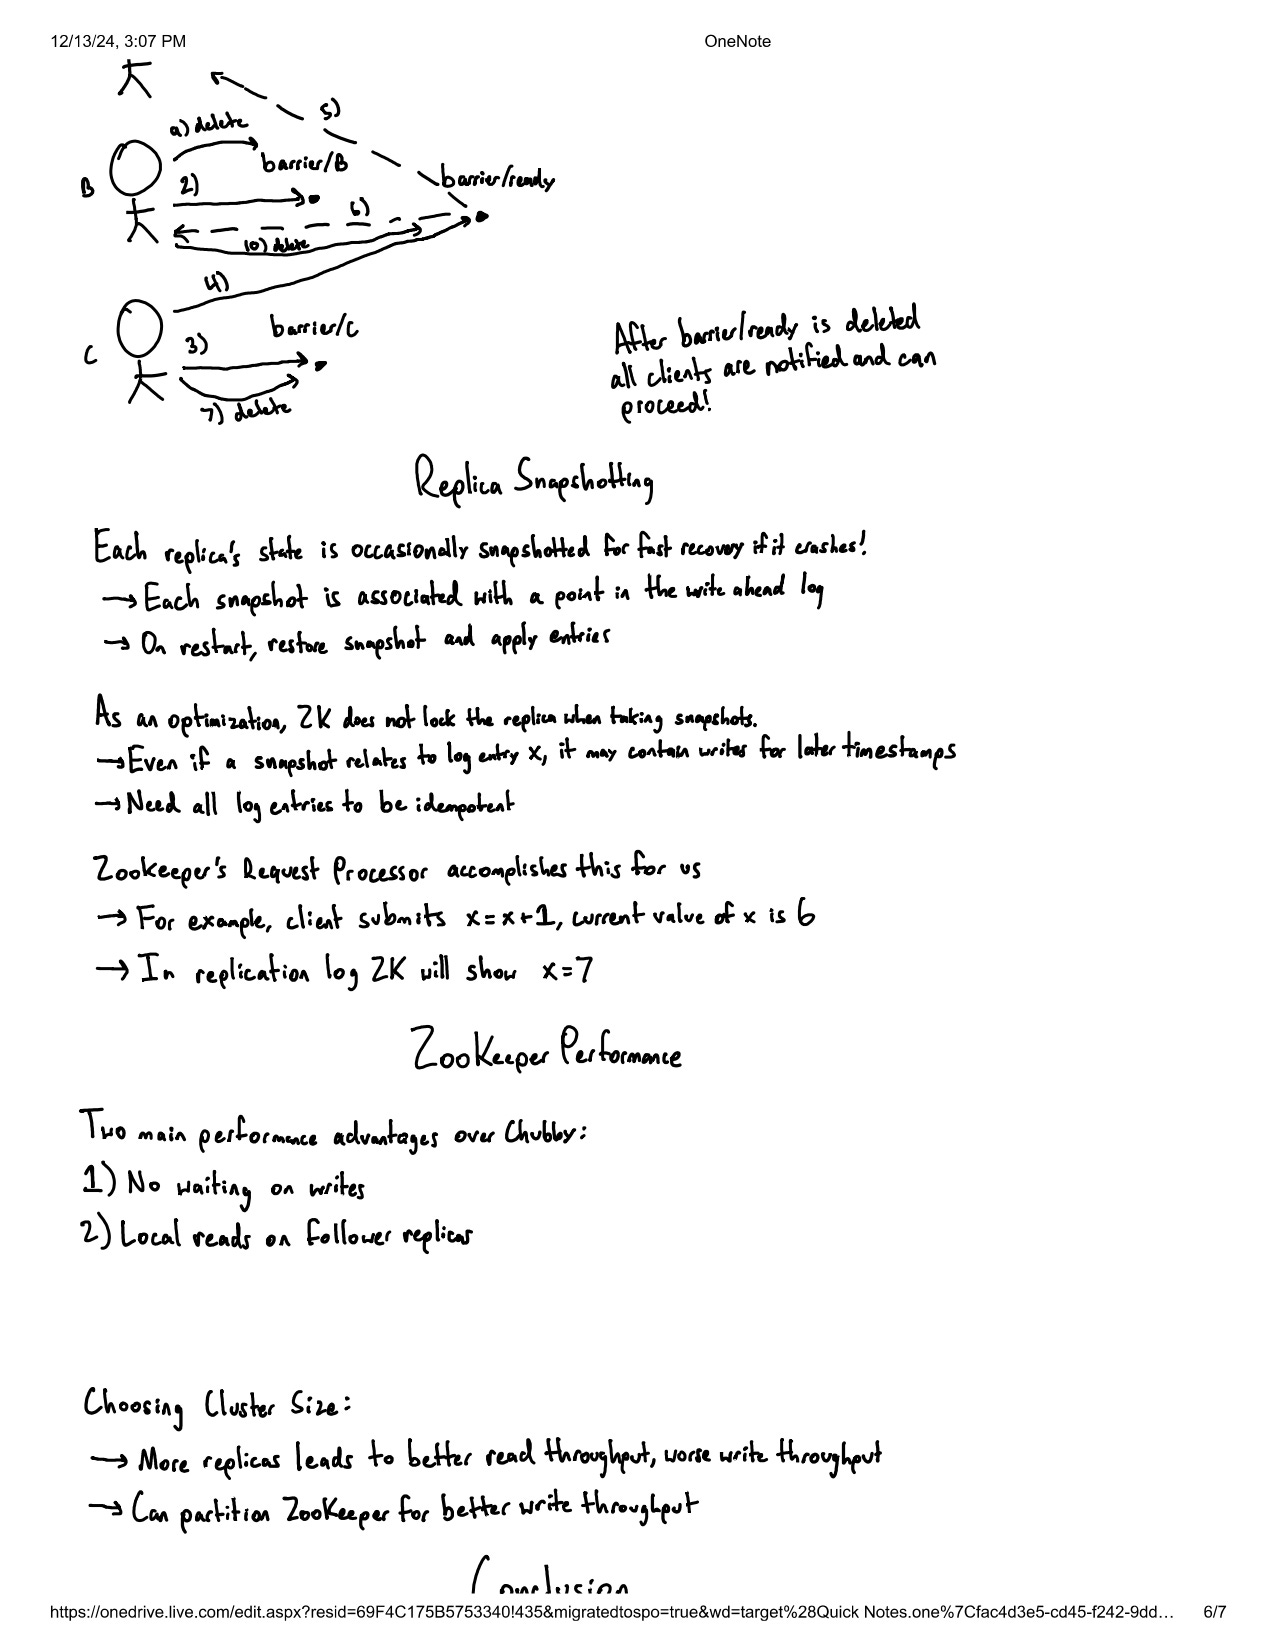 12/13/24, 3:07 PM
OneNote
5)
a) delete
barrier/B
barrier/ready
B
2)
6)
10) delete
4)
barrier/C
C
3)
7) delete
After barrier/ready is deleted
all clients are notified and can
proceed!
Replica Snapshotting
Each replica's state is occasionally snapshotted for fast recovery if it crashes!
→ Each snapshot is associated with a point in the write ahead log
→ On restart, restore snapshot and apply entries
As an optimization, ZK does not lock the replica when taking snapshots.
→ Even if a snapshot relates to log entry X, it may contain writes for later timestamps
→ Need all log entries to be idempotent
Zookeeper's Request Processor accomplishes this for us
→ For example, client submits x=x+1, current value of x is 6
→ In replication log ZK will show x=7
ZooKeeper Performance
Two main performance advantages over Chubby:
1) No waiting on writes
2) Local reads on follower replicas
Choosing Cluster Size:
→ More replicas leads to better read throughput, worse write throughput
→ Can partition ZooKeeper for better write throughput
Conclusion
https://onedrive.live.com/edit.aspx?resid=69F4C175B5753340!435&migratedtospo=true&wd=target%28Quick Notes.one%7Cfac4d3e5-cd45-f242-9dd…
6/7